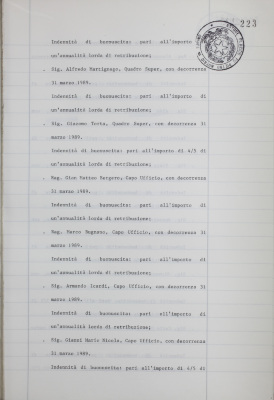 223
Indennità di buonuscita: pari all'importo di
un'annualità lorda di retribuzione;
. Sig. Alfredo Martignago, Quadro Super, con decorrenza
31 marzo 1989.
Indennità di buonuscita: pari all'importo di
un'annualità lorda di retribuzione;
. Sig. Giacomo Torta, Quadro Super, con decorrenza 31
marzo 1989.
Indennità di buonuscita: pari all'importo di 4/5 di
un'annualità lorda di retribuzione;
. Rag. Gian Matteo Bergero, Capo Ufficio, con decorrenza
31 marzo 1989.
Indennità di buonuscita: pari all'importo di
un'annualità lorda di retribuzione;
. Rag. Marco Rognone, Capo Ufficio, con decorrenza 31
marzo 1989.
Indennità di buonuscita: pari all'importo di
un'annualità lorda di retribuzione;
. Sig. Armando Icardi, Capo Ufficio, con decorrenza 31
marzo 1989.
Indennità di buonuscita: pari all'importo di
un'annualità lorda di retribuzione;
. Sig. Gianni Mario Miscle, Capo Ufficio, con decorrenza
31 marzo 1989.
Indennità di buonuscita: pari all'importo di 4/5 di